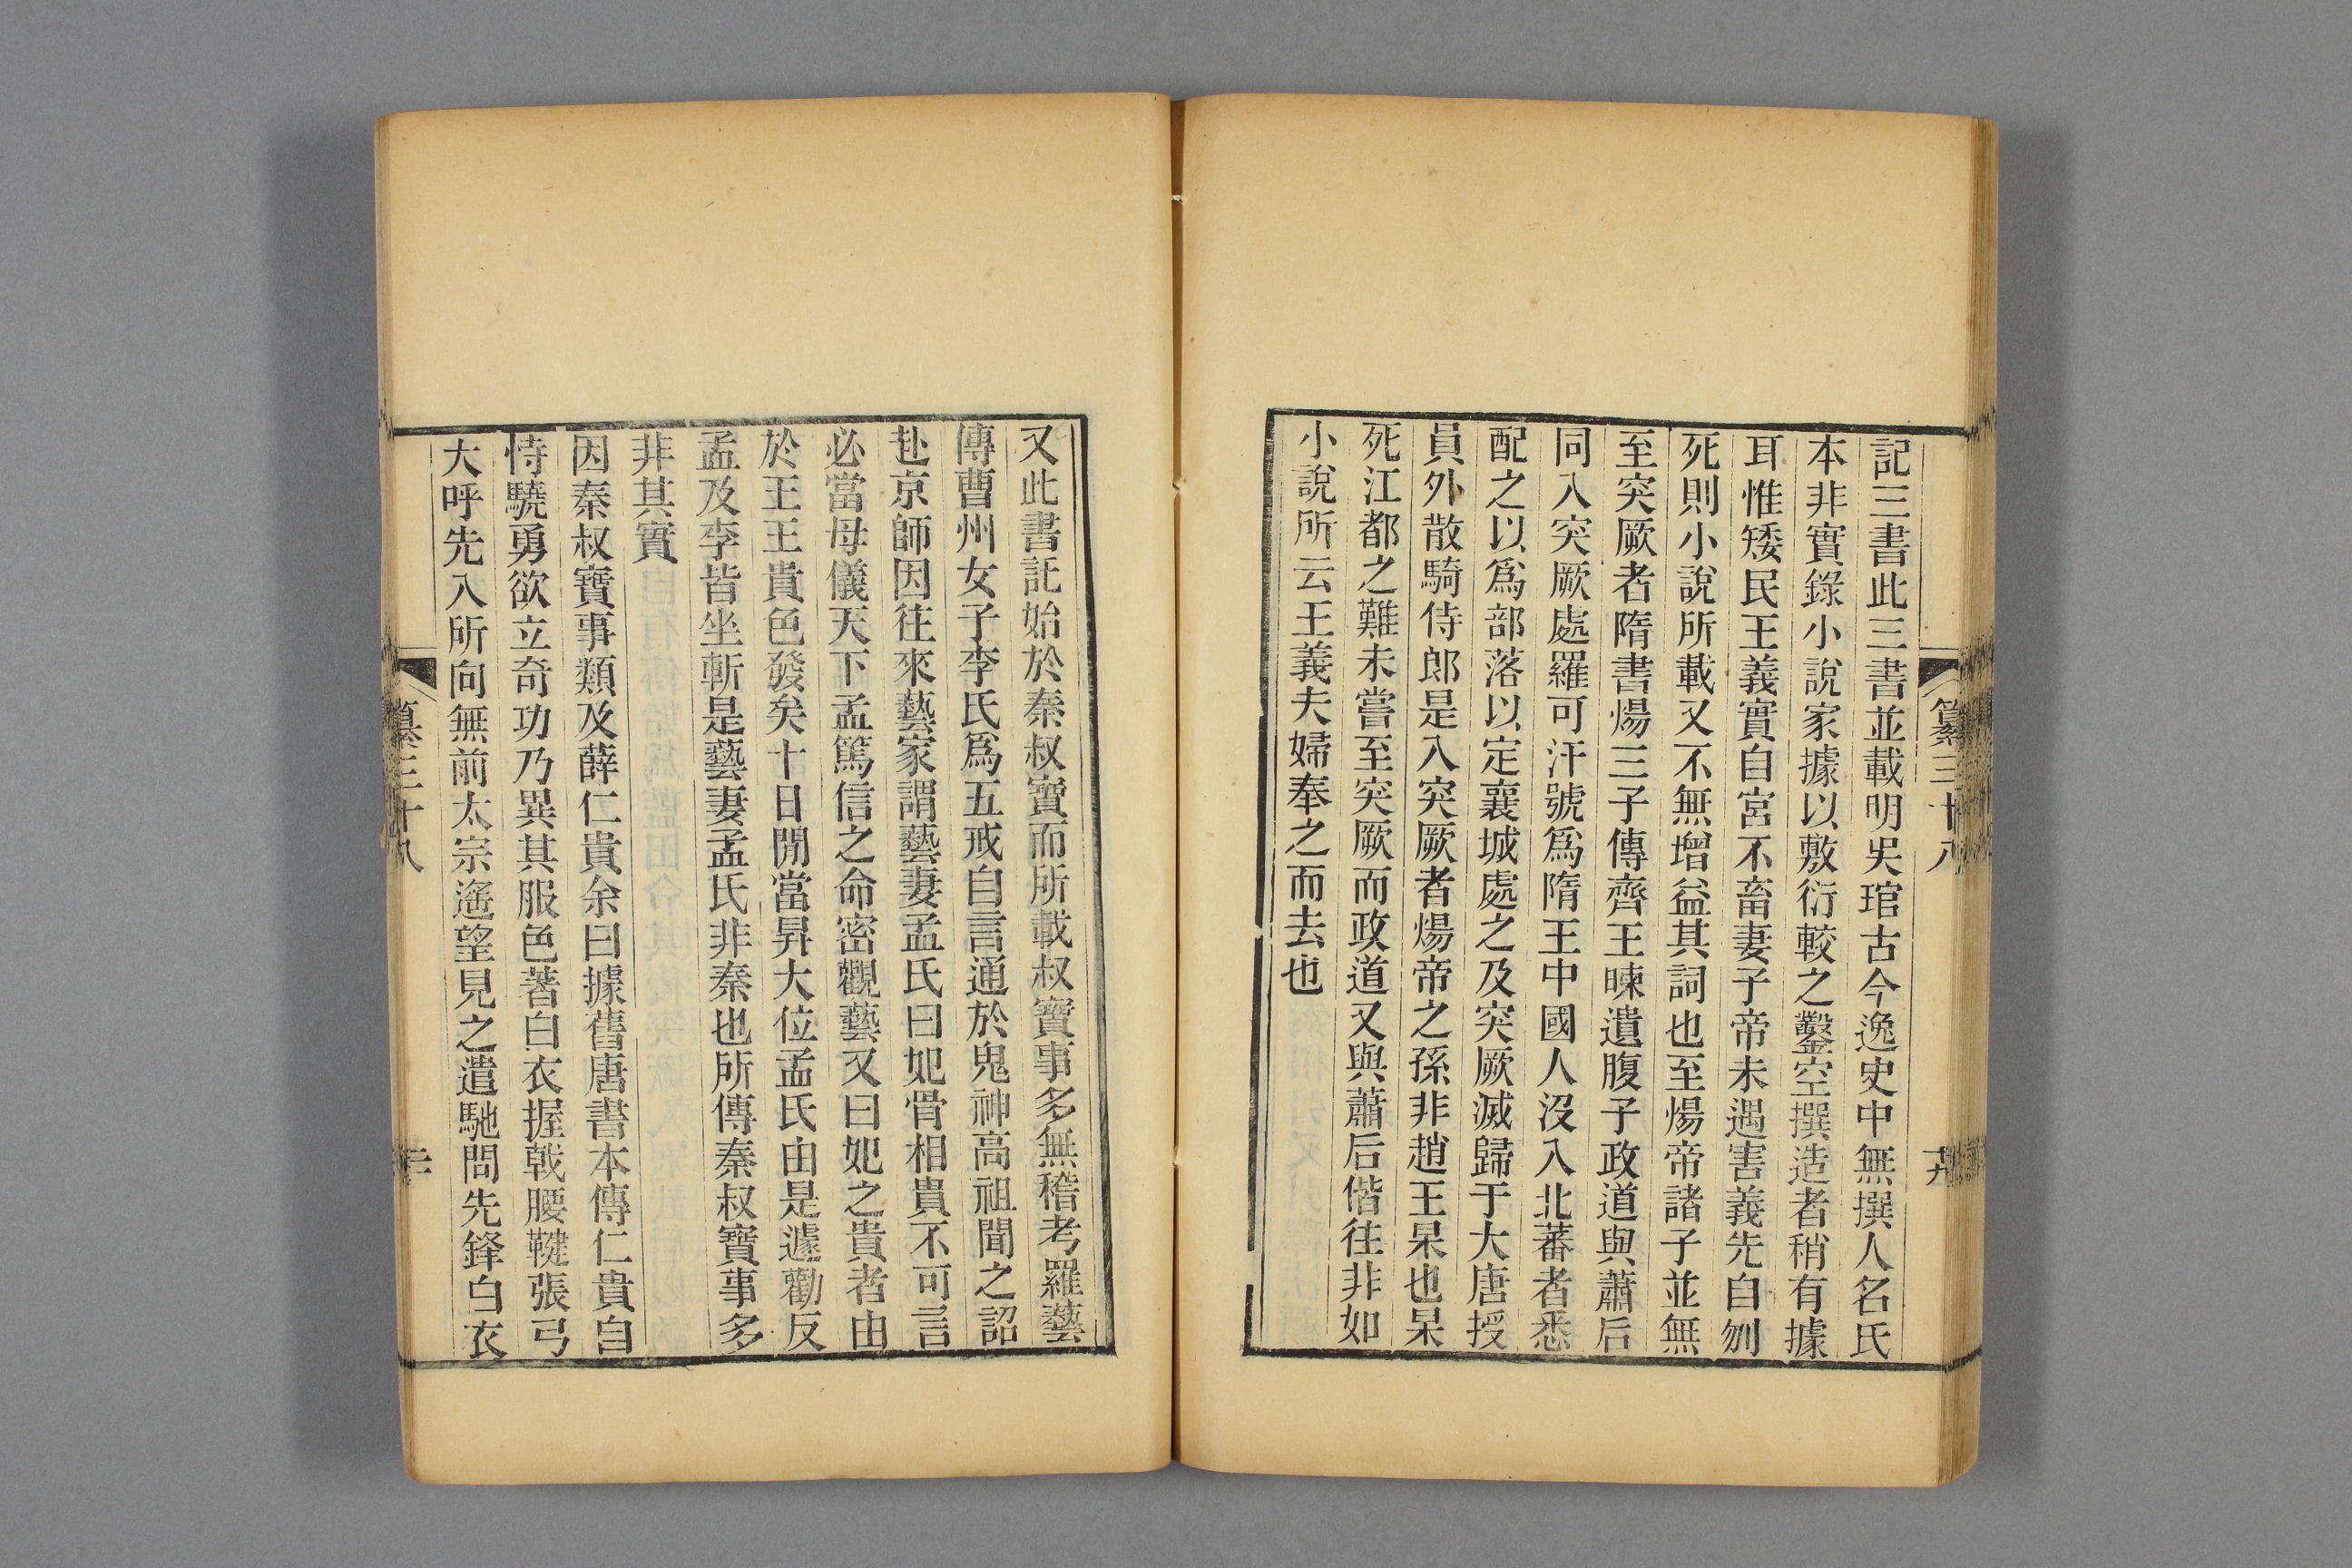 記三書此三書並載明吳琯古今逸史中無撰人名氏
本非實錄小說家據以敷衍較之鑿空撰造者稍有據
耳惟矮民王義實自宮不畜妻子帝未遇害義先自刎
死則小說所載又不無增益其詞也至煬帝諸子並無
至突厥者隋書煬三子傳齊王暕遺腹子政道與蕭后
同入突厥處羅可汗號爲隋王中國人沒入北蕃者悉
配之以爲部落以定襄城處之及突厥滅歸于大唐授
員外散騎侍郎是入突厥者煬帝之孫非趙王杲也杲
死江都之難未嘗至突厥而政道又與蕭后偕往非如
小說所云王義夫婦奉之而去也
纂三十八
又此書託始於秦叔寶而所載叔寶事多無稽考羅藝
傳曹州女子李氏爲五戒自言通於鬼神高祖聞之詔
赴京師因往來藝家謂藝妻孟氏曰妃骨相貴不可言
必當母儀天下孟篤信之命密觀藝又曰妃之貴者由
於王王貴色發矣十日閒當昇大位孟氏由是遽勸反
孟及李皆坐斬是藝妻孟氏非秦也所傳秦叔寶事多
非其實
因秦叔寶事類及薛仁貴余曰據舊唐書本傳仁貴自
恃驍勇欲立奇功乃異其服色著白衣握戟腰鞬張弓
大呼先入所向無前太宗遙望見之遣馳問先鋒白衣
纂三十八